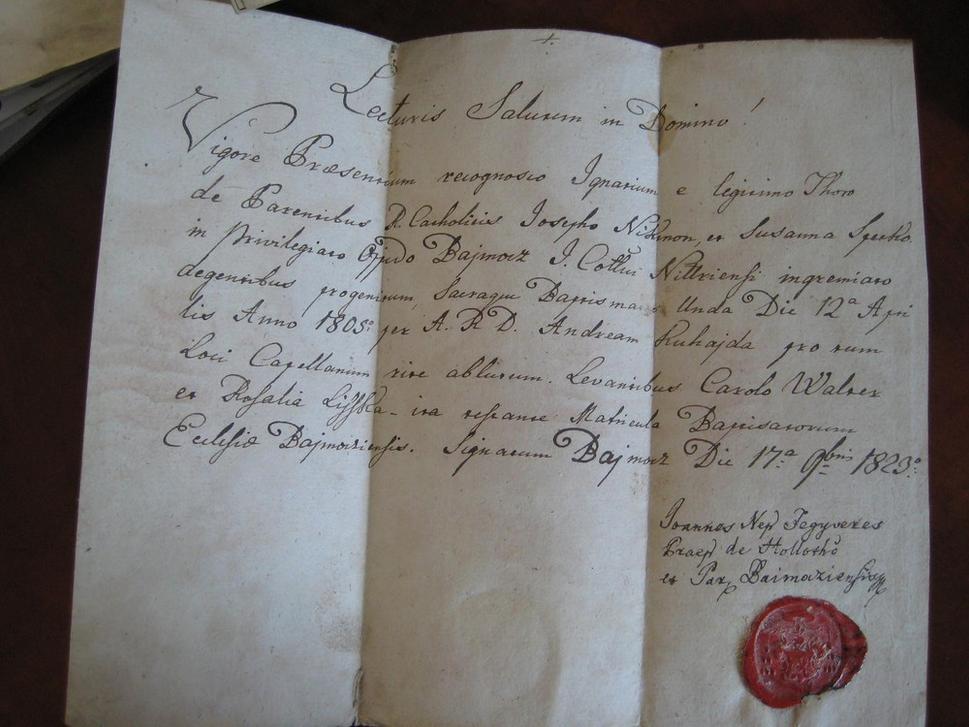 Lecturis Salutem in Domino!
Vigore Præsentium recognosco Ignatium e legitimo Thoro
de Parentibus R. Catholicis Josepho Nikmon, et Susanna Specko
in Privilegiato Oppido Bajmocz I. Cottui Nittriensi ingremiato
degentibus progenitum, Sacraque Baptismatis Unda Die 12ª Apri
lis Anno 1805º per A. R. D. Andream Kuhajda pro tum
Loci Capellanum rite ablutum. Levantibus Carolo Walter
et Rosalia - ita testante Matricula Baptisatorum
Ecclesiæ Bajmocziensis. Signatum Bajmocz Die 17ª 9bris 1823º
Joannes Nep Fegyveres
Præp de
et Par Baimocziensis